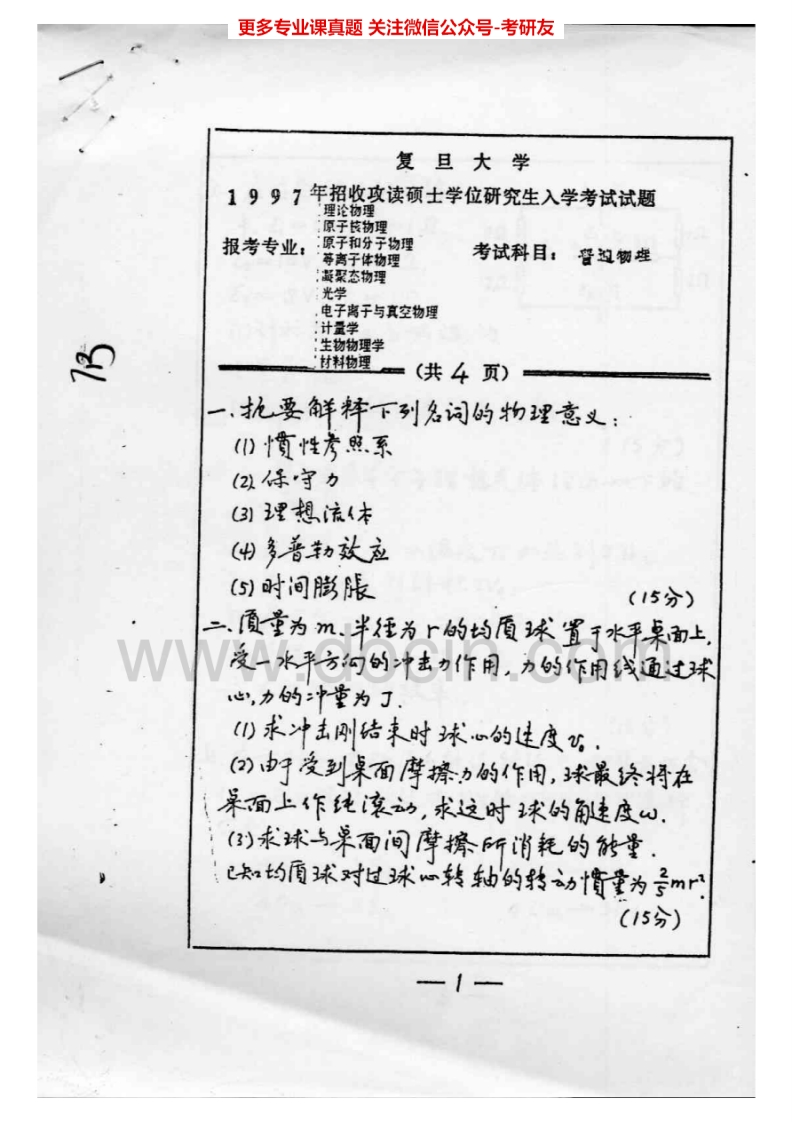 更多专业课真题 关注微信公众号-考研友
复旦大学
1997年招收攻读硕士学位研究生入学考试试题
理论物理
原子核物理
报考专业：原子和分子物理 考试科目：普通物理
等离子体物理
凝聚态物理
光学
电子离子与真空物理
计量学
生物物理学
材料物理
（共4页）
一、扼要解释下列名词的物理意义：
(1) 惯性参照系
(2) 保守力
(3) 理想流体
(4) 多普勒效应
(5) 时间膨胀 (15分)
二、质量为m、半径为r的均质球置于水平桌面上，
受一水平方向的冲击力作用，力的作用线通过球
心，力的冲量为J．
(1) 求冲击刚结束时球心的速度v₀．
(2) 由于受到桌面摩擦力的作用，球最终将在
桌面上作纯滚动，求这时球的角速度ω．
(3) 求球与桌面间摩擦所消耗的能量．
已知均质球对过球心转轴的转动惯量为2/5mr²．
(15分)
www.docin.com
—1—